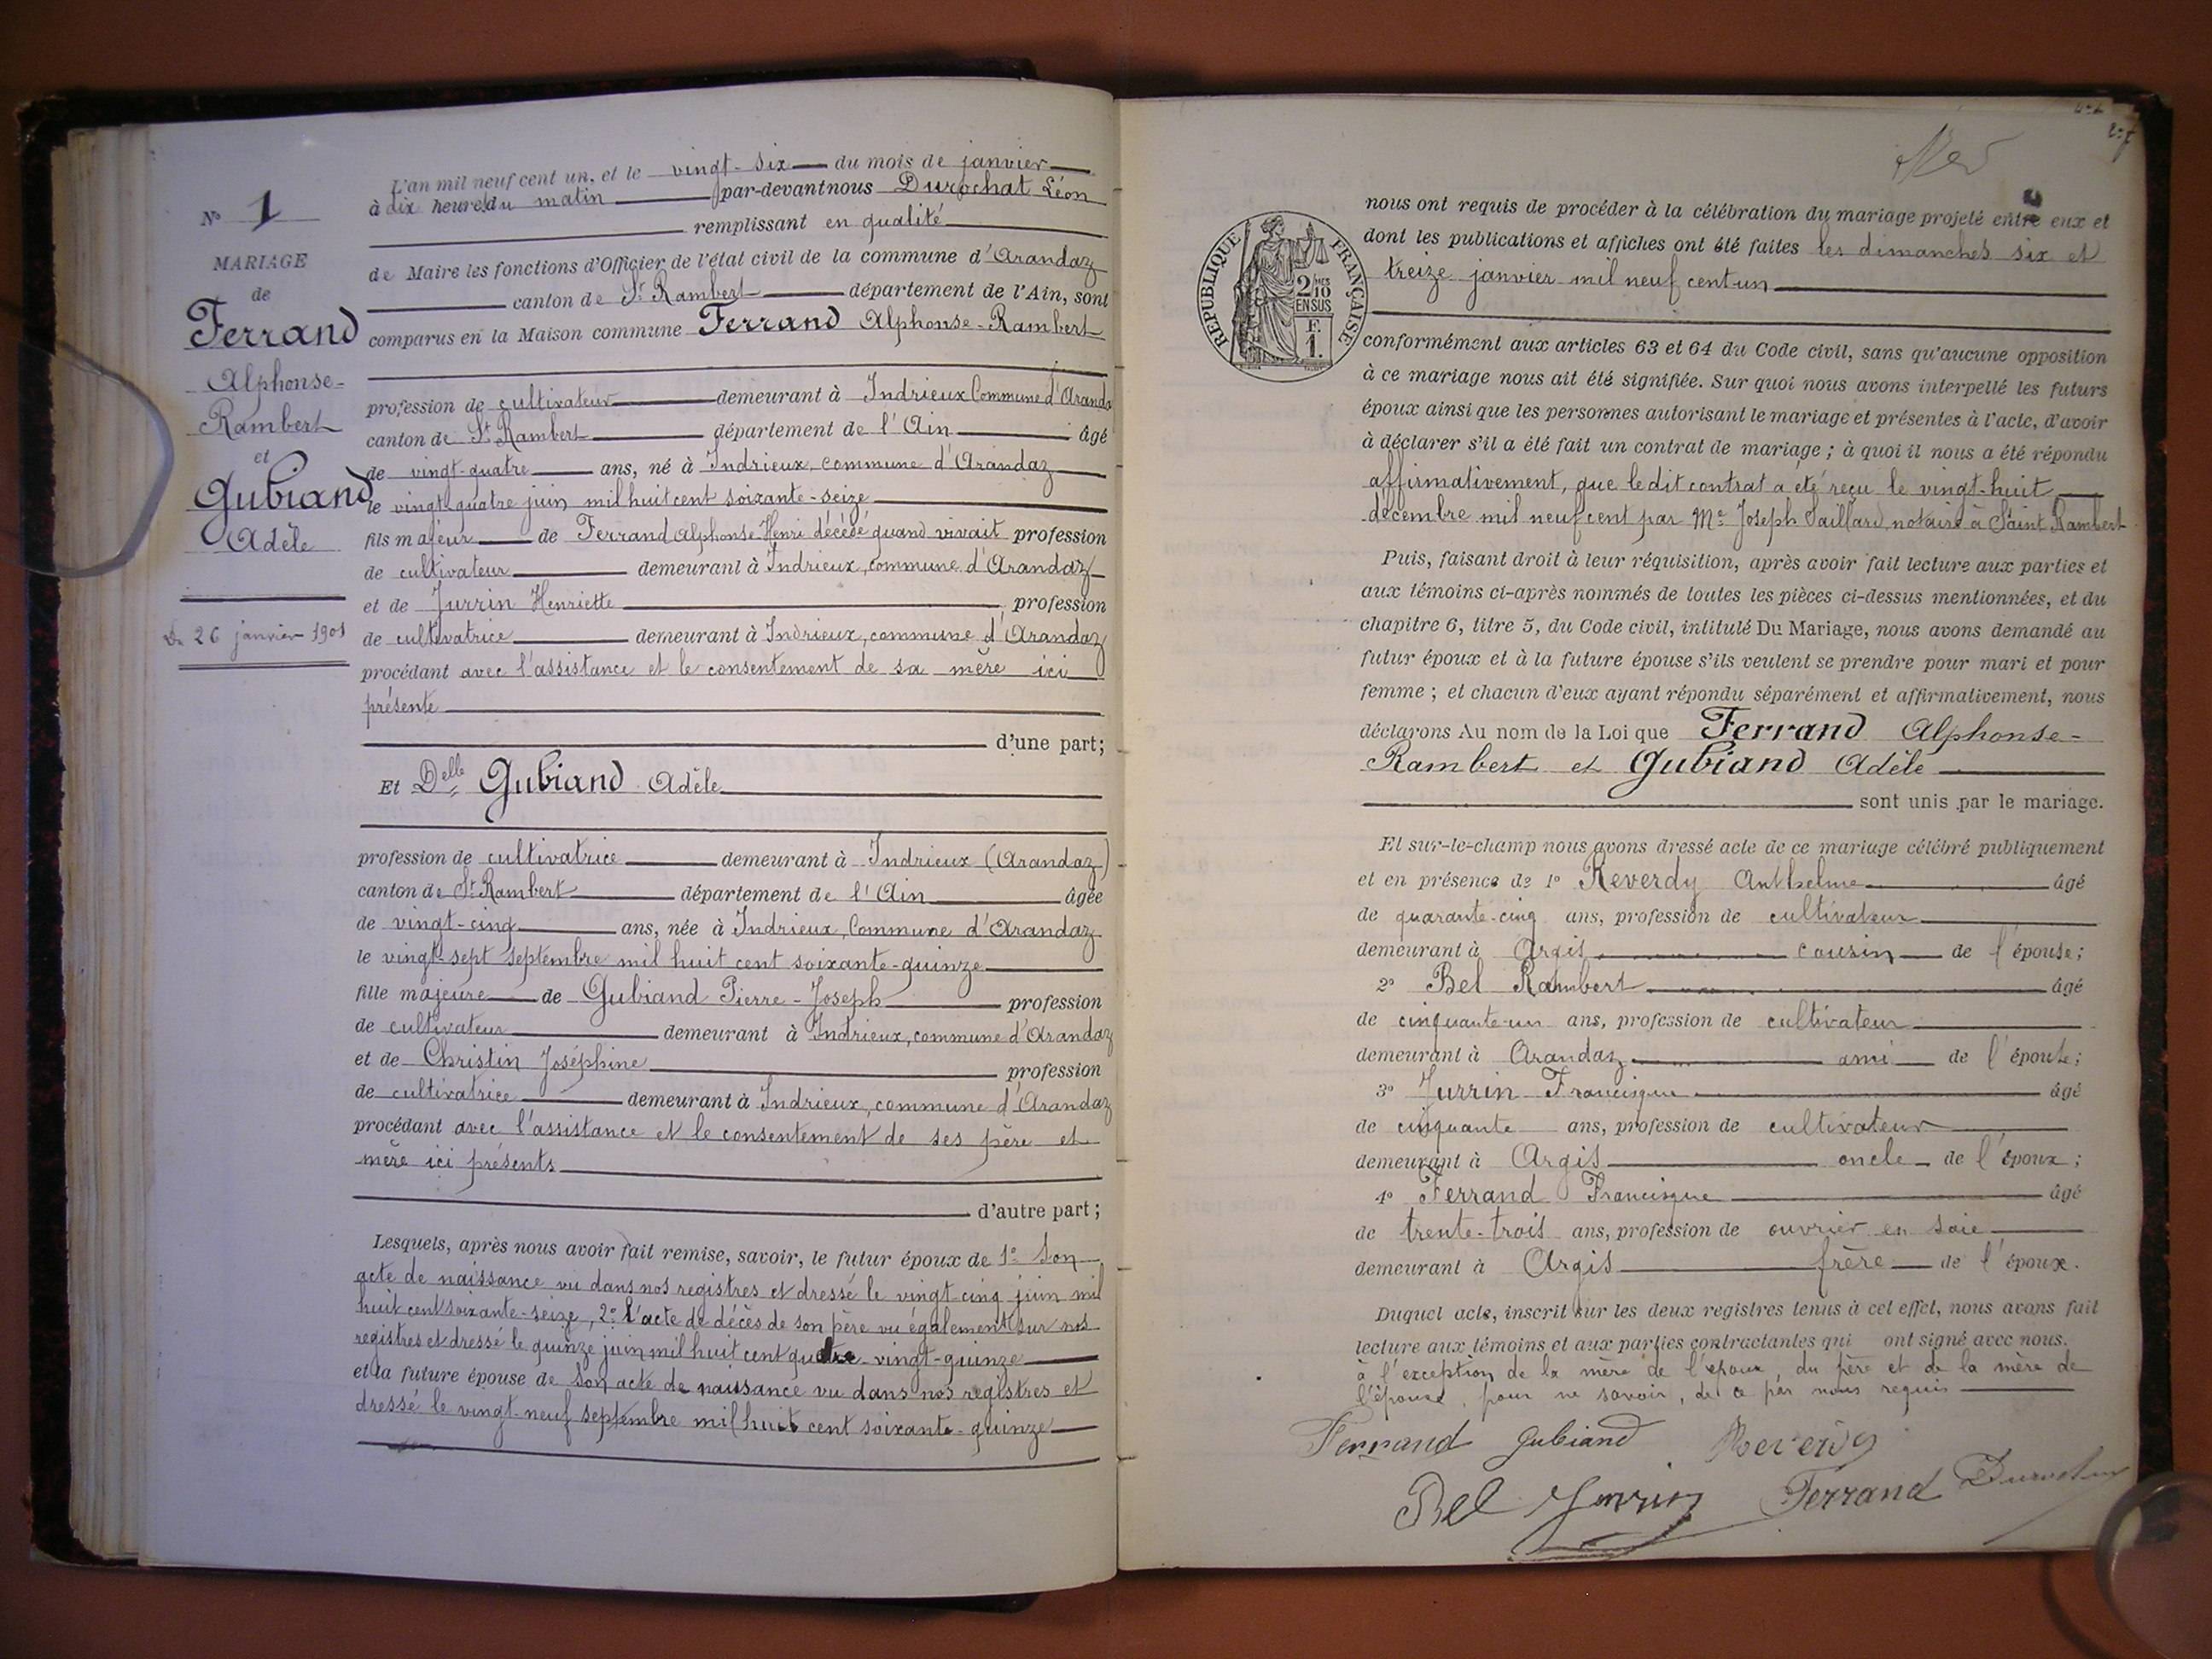 L'an mil neuf cent un, et le vingt-six du mois de janvier
à dix heures du matin par-devant nous Durochat Léon
remplissant en qualité
de Maire les fonctions d'Officier de l'état civil de la commune d'Arandaz
canton de St Rambert département de l'Ain, sont
comparus en la Maison commune Ferrand Alphonse-Rambert
profession de cultivateur demeurant à Indrieux Commune d'Aranda
canton de St Rambert département de l'Ain âgé
de vingt-quatre ans, né à Indrieux, commune d'Arandaz
le vingt-quatre juin mil huit cent soixante-seize
fils majeur de Ferrand Alphonse-Henri décédé quand vivait profession
de cultivateur demeurant à Indrieux, commune d'Arandaz
et de Jurrin Henriette profession
de cultivatrice demeurant à Indrieux, commune d'Arandaz
procédant avec l'assistance et le consentement de sa mère ici
présente
d'une part;
Et Delle Gubiand Adèle
profession de cultivatrice demeurant à Indrieux (Arandaz)
canton de St Rambert département de l'Ain âgée
de vingt-cinq ans, née à Indrieux, Commune d'Arandaz
le vingt-sept septembre mil huit cent soixante-quinze
fille majeure de Gubiand Pierre-Joseph profession
de cultivateur demeurant à Indrieux, commune d'Arandaz
et de Christin Joséphine profession
de cultivatrice demeurant à Indrieux, commune d'Arandaz
procédant avec l'assistance et le consentement de ses père et
mère ici présents
d'autre part;
Lesquels, après nous avoir fait remise, savoir, le futur époux de 1° Son
acte de naissance vu dans nos registres et dressé le vingt-cinq juin mil
huit cent soixante-seize, 2° L'acte de décès de son père vu également sur nos
registres et dressé le quinze juin mil huit cent quatre-vingt-quinze
et la future épouse de Son acte de naissance vu dans nos registres et
dressé le vingt-neuf septembre mil huit cent soixante-quinze
N° 1
MARIAGE
de
Ferrand
Alphonse-
Rambert
et
Gubiand
Adèle
Du 26 janvier 1901
nous ont requis de procéder à la célébration du mariage projeté entre eux et
dont les publications et affiches ont été faites les dimanches six et
treize janvier mil neuf cent un
RÉPUBLIQUE FRANÇAISE
2/10 MES
EN SUS
F.
1.
conformément aux articles 63 et 64 du Code civil, sans qu'aucune opposition
à ce mariage nous ait été signifiée. Sur quoi nous avons interpellé les futurs
époux ainsi que les personnes autorisant le mariage et présentes à l'acte, d'avoir
à déclarer s'il a été fait un contrat de mariage; à quoi il nous a été répondu
affirmativement, que ledit contrat a été reçu le vingt-huit
décembre mil neuf cent par Me Joseph Saillard, notaire à Saint Rambert
Puis, faisant droit à leur réquisition, après avoir fait lecture aux parties et
aux témoins ci-après nommés de toutes les pièces ci-dessus mentionnées, et du
chapitre 6, titre 5, du Code civil, intitulé Du Mariage, nous avons demandé au
futur époux et à la future épouse s'ils veulent se prendre pour mari et pour
femme; et chacun d'eux ayant répondu séparément et affirmativement, nous
déclarons Au nom de la Loi que Ferrand Alphonse-
Rambert et Gubiand Adèle
sont unis par le mariage.
Et sur-le-champ nous avons dressé acte de ce mariage célébré publiquement
et en présence de 1° Reverdy Anthelme âgé
de quarante-cinq ans, profession de cultivateur
demeurant à Argis cousin de l'épouse;
2° Bel Rambert âgé
de cinquante-un ans, profession de cultivateur
demeurant à Arandaz ami de l'épouse;
3° Jurrin Francisque âgé
de cinquante ans, profession de cultivateur
demeurant à Argis oncle de l'époux;
4° Ferrand Francisque âgé
de trente-trois ans, profession de ouvrier en soie
demeurant à Argis frère de l'époux.
Duquel acte, inscrit sur les deux registres tenus à cet effet, nous avons fait
lecture aux témoins et aux parties contractantes qui ont signé avec nous,
à l'exception de la mère de l'époux, du père et de la mère de
l'épouse, pour ne savoir, de ce par nous requis
Ferrand Gubiand Reverdy
Bel Jurrin Ferrand Durochat